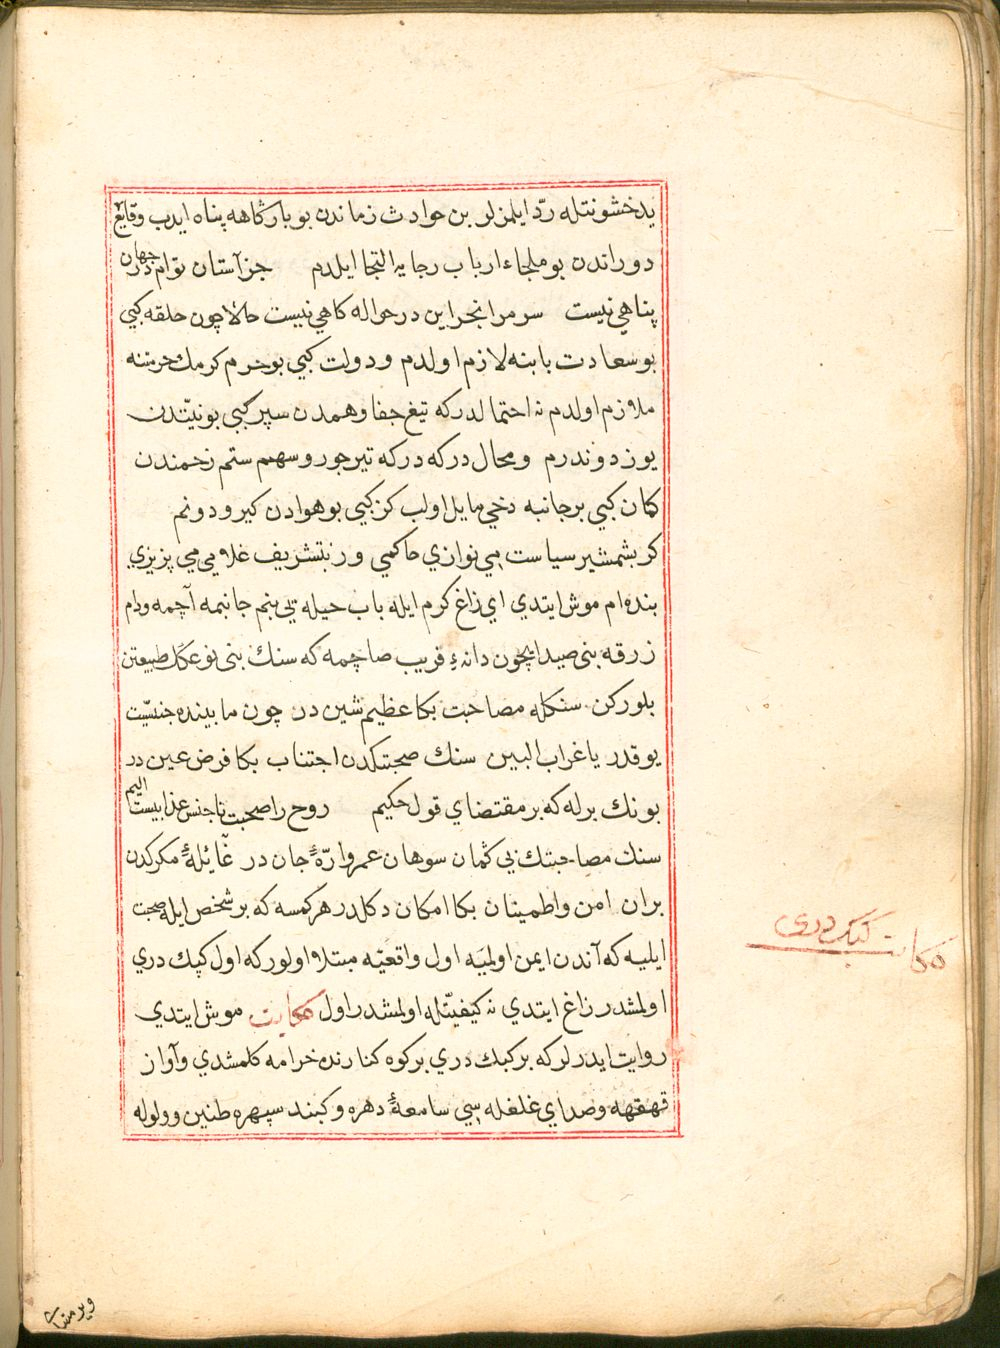 يدخشونتله ردّ ايلمزلر بن حوادث زماندن بو باركاهه پناه ايدب وقايع
دوراندن بو ملجاء ارباب رجايه التجا ايلدم جز آستان توام در جهان
پناهي نيست سر مرا بجز اين در حواله كاهي نيست حالا چون حلقه كبي
بو سعادت بابنه لازم اولدم و دولت كبي بو حرم كرمك خرمتنه
ملازم اولدم نه احتمالدركه تيغ جفا و همدن سپر كبي بو نيّتدن
يوز دوندرم و محال دركه دركه تير جور و سهم ستم زخمندن
كمان كبي بر جانبه دخي مايل اولب كن كبي بو هوادن كيرو دونم
كر بشمشير سياست مي نوازي حاكمي ور بتشريف غلامي مي پزيزي
بنده ام موش ايتدي اي زاغ كرم ايله باب حيله يي بنم جانبمه آچمه و دام
زرقه بني صيد ايچون دانهٔ فريب صاچمه كه سنك بني نوعكك طبيعتن
بلوركن سنكله مصاحبت بكا عظيم شين در چون مابينده جنسيّت
يوقدر يا غراب البين سنك صحبتكدن اجتناب بكا فرض عين در
بونك برله كه بر مقتضاي قول حكيم روح را صحبت ناجنس عذابيست اليم
سنك مصاحبتك بي كمان سوهان عمر و ارّهٔ جان در غائلهٔ مكركدن
بران امن و اطمينان بكا امكان دكلدر هر كمسه كه بر شخص ايله صحبت
ايليه كه آندن ايمن اولميه اول واقعيّه مبتلا اولور كه اول كبك دري
اولمشدر زاغ ايتدي نه كيفيّتله اولمشدر اول حكايت موش ايتدي
روايت ايدرلر كه بر كبك دري بر كوه كنارنده خرامه كلمشدي و آواز
قهقهه و صداي غلغله سي سامعهٔ دهره و كبند سپهره طنين و ولوله
حكايت كبك دري
ويرمشدي